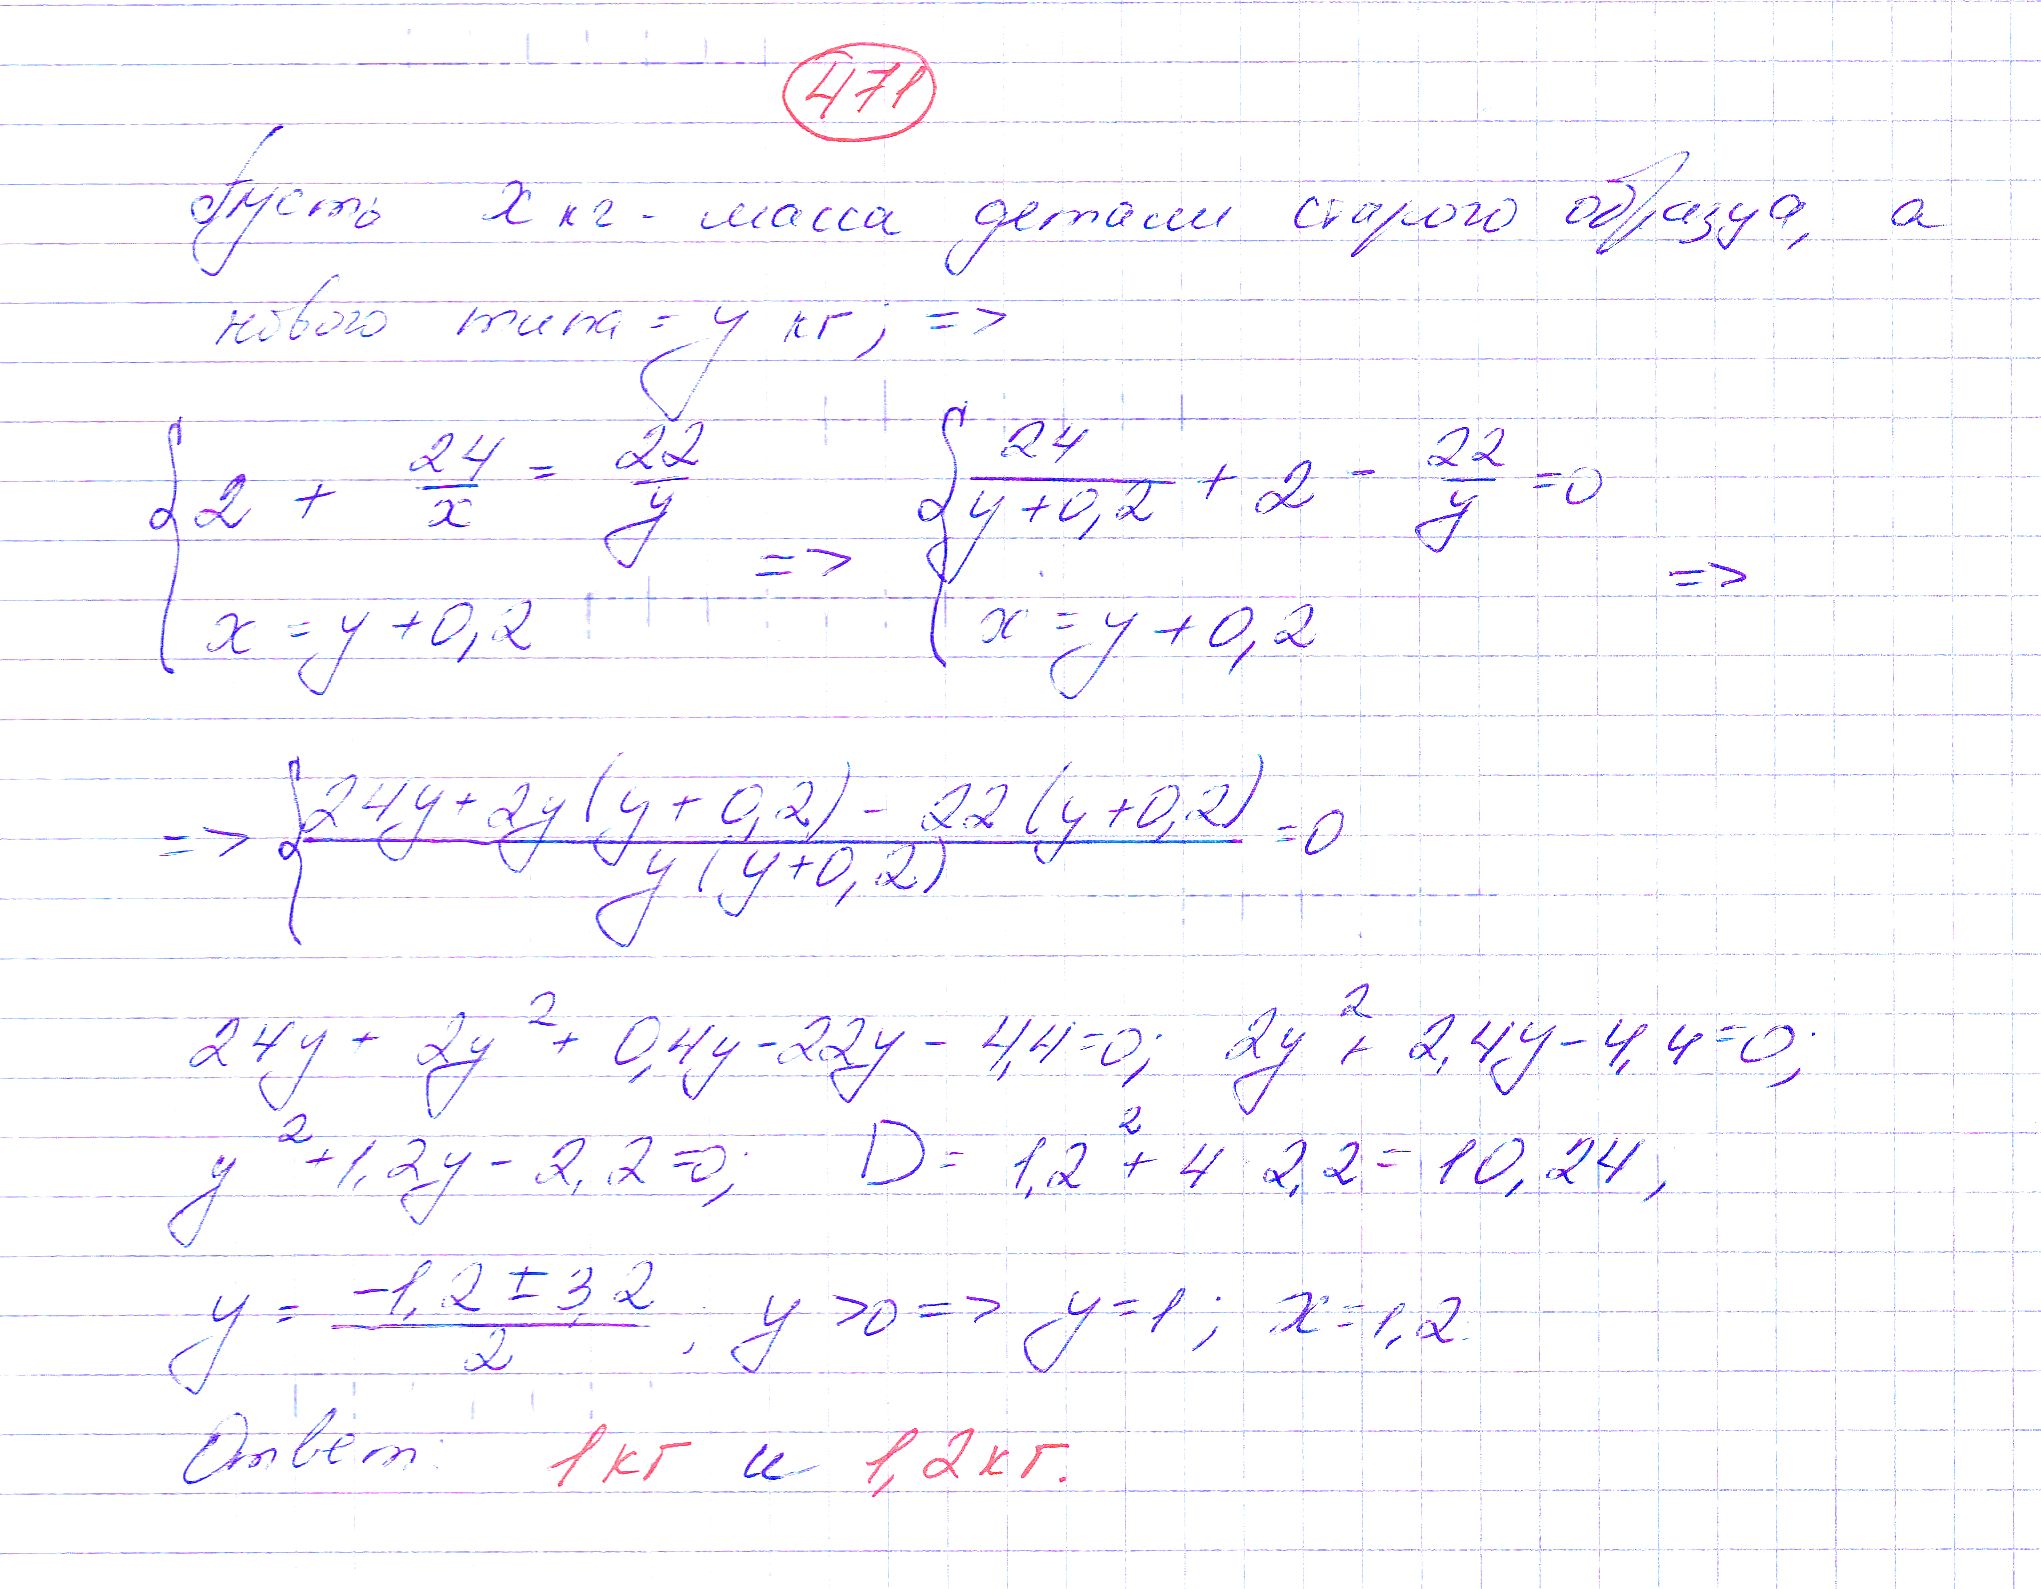 471
Пусть x кг - масса детали старого образца, а
нового типа = y кг; =>
{ 2 + 24/x = 22/y => { 24/(y+0,2) + 2 - 22/y = 0 =>
x = y + 0,2 x = y + 0,2
=> { (24y + 2y(y+0,2) - 22(y+0,2))/(y(y+0,2)) = 0
24y + 2y² + 0,4y - 22y - 4,4 = 0; 2y² + 2,4y - 4,4 = 0;
y² + 1,2y - 2,2 = 0; D = 1,2² + 4 2,2 = 10,24,
y = (-1,2 ± 3,2)/2; y > 0 => y = 1; x = 1,2.
Ответ: 1 кг и 1,2 кг.